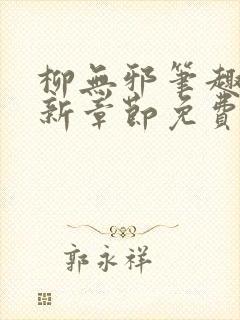 柳無邪筆趣
新章節免費
郭永祥